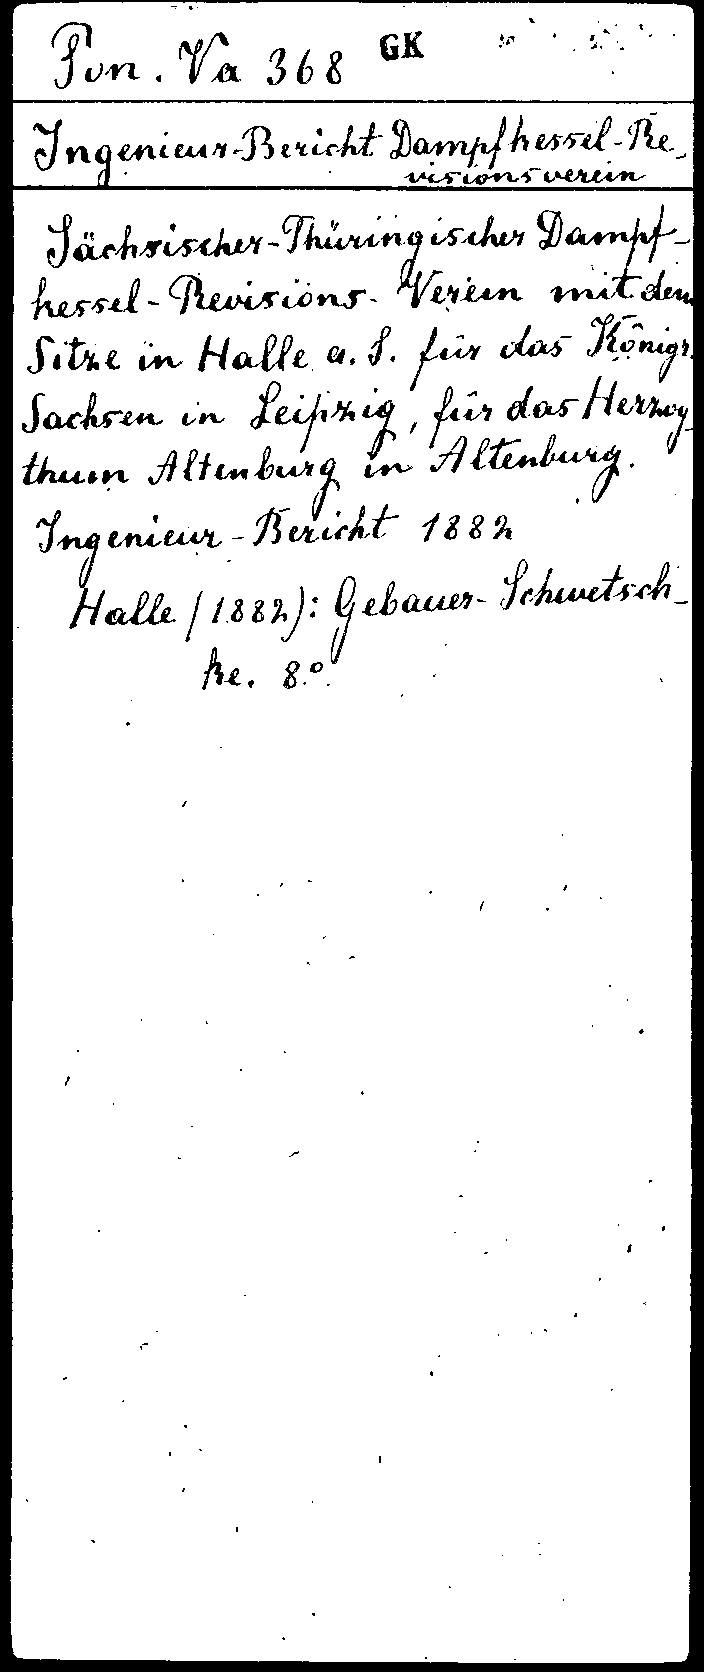 Pon. Va 368 GK
Ingenieur-Bericht Dampfkessel-Re-
visionsverein
Sächsischer-Thüringischer Dampf-
kessel-Revisions-Verein mit dem
Sitze in Halle a. S. für das Königr.
Sachsen in Leipzig, für das Herzog-
thum Altenburg in Altenburg.
Ingenieur-Bericht 1882
Halle (1882): Gebauer-Schwetsch-
ke. 8.°